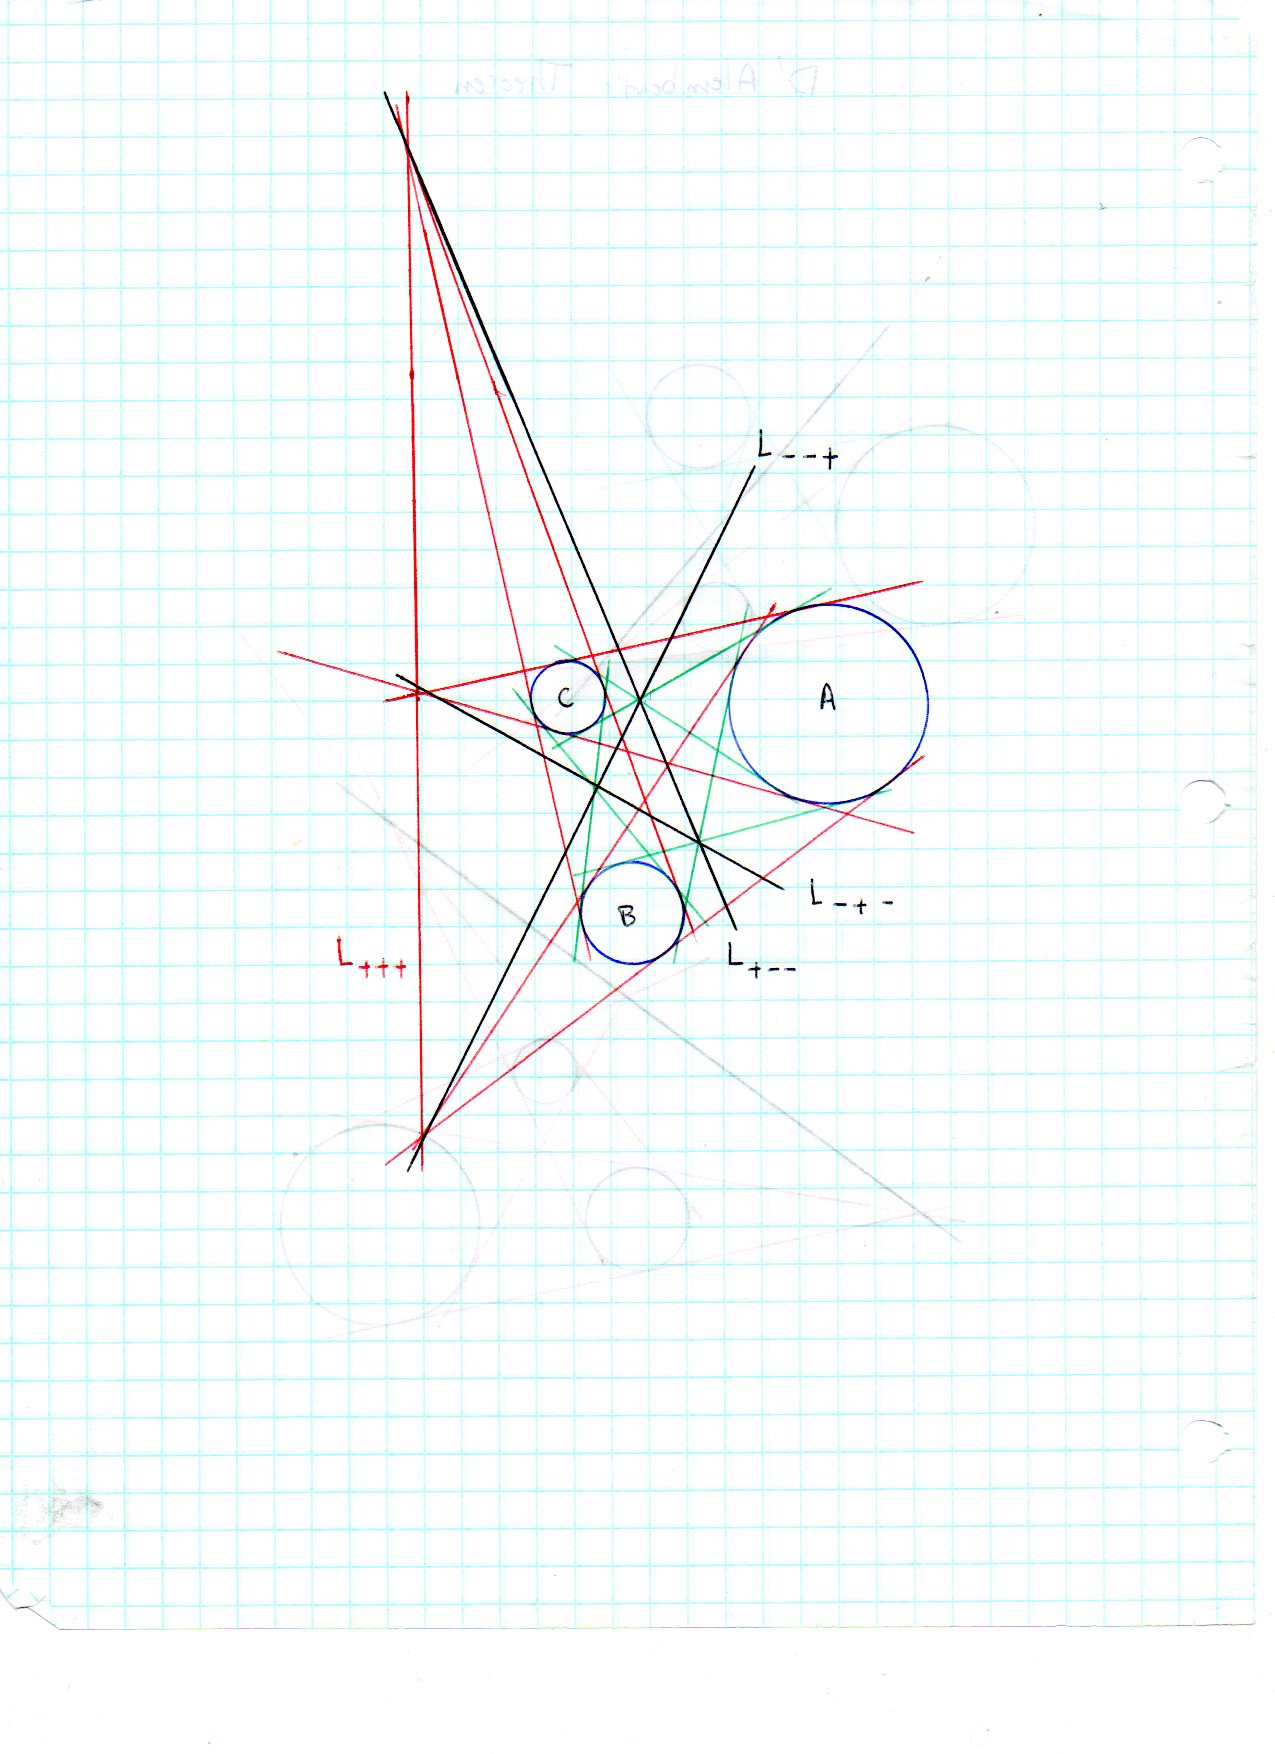 D'Alembert's Theorem
L--+
C
A
L-+-
B
L+++
L+--